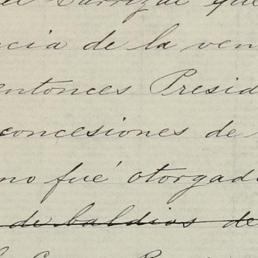 el Carrizal que
cia de la ven
entonces Presid
concesiones de
no fué otorgad
de baldíos de